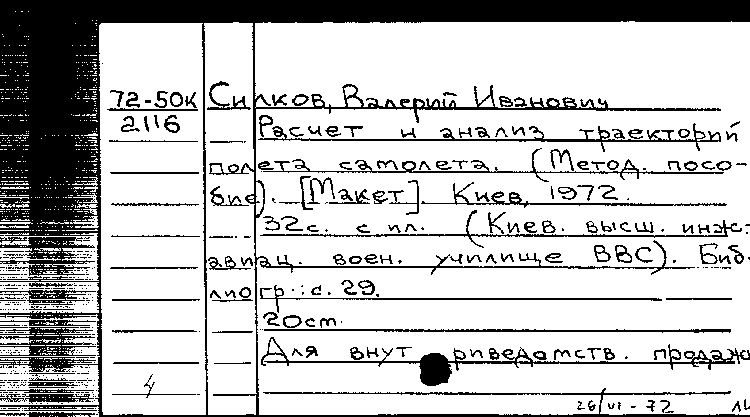 72-50К Силков, Валерий Иванович
2116 Расчет и анализ траекторий
полета самолета. (Метод. посо-
бие). [Макет]. Киев, 1972.
32с. с ил. (Киев. высш. инж.-
авиац. воен. училище ВВС). Биб-
лиогр.: с. 29.
20 ст.
Для внут риведомств. продажи
4
26/VI-72